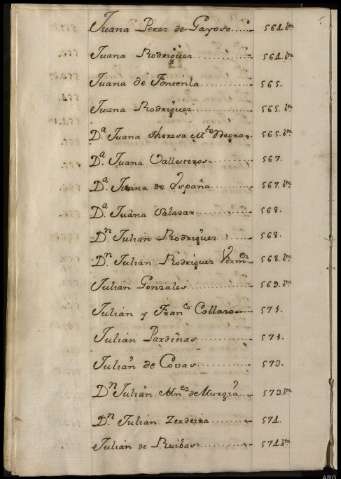 Juana Perez de Gayoso 564. bto
Juana Rodriguez 564. bto
Juana de Foncenla 565.
Juana Rodriguez 565. bto
Da. Juana Theresa 565. bto
Da. Juana Vallesteros 567.
Da. Juana de España 567. bto
Da. Juana Salazar 568.
Dn. Julian Rodriguez 568.
Dn. Julian Rodriguez 568. bto
Julian Gonzales 569. bto
Julian y Franco. Collazo 571.
Julian Pardiñas 571.
Julian de Covas 573.
Dn. Julian de Murgia 573. bto
Dn. Julian Zerdeira 574.
Julian de Ruibas 574. bto